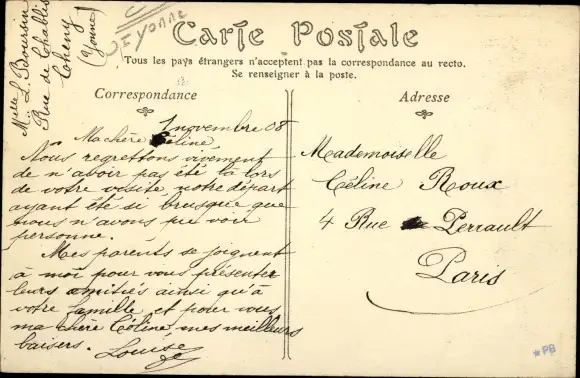 Melle L. Boursin
Rue de Chablis
Cheny
(Yonne)
YONNE
Carte Postale
Tous les pays étrangers n'acceptent pas la correspondance au recto.
Se renseigner à la poste.
Correspondance
Adresse
1 novembre 08
Ma chère Céline
Nous regrettons vivement
de n'avoir pas été là lors
de votre visite, notre départ
ayant été si brusque que
nous n'avons pu voir
personne.
Mes parents se joignent
à moi pour vous présenter
leurs amitiés ainsi qu'à
votre famille et pour vous,
ma chère Céline, mes meilleurs
baisers. Louise
Mademoiselle
Céline Roux
4 Rue Perrault
Paris
*PB